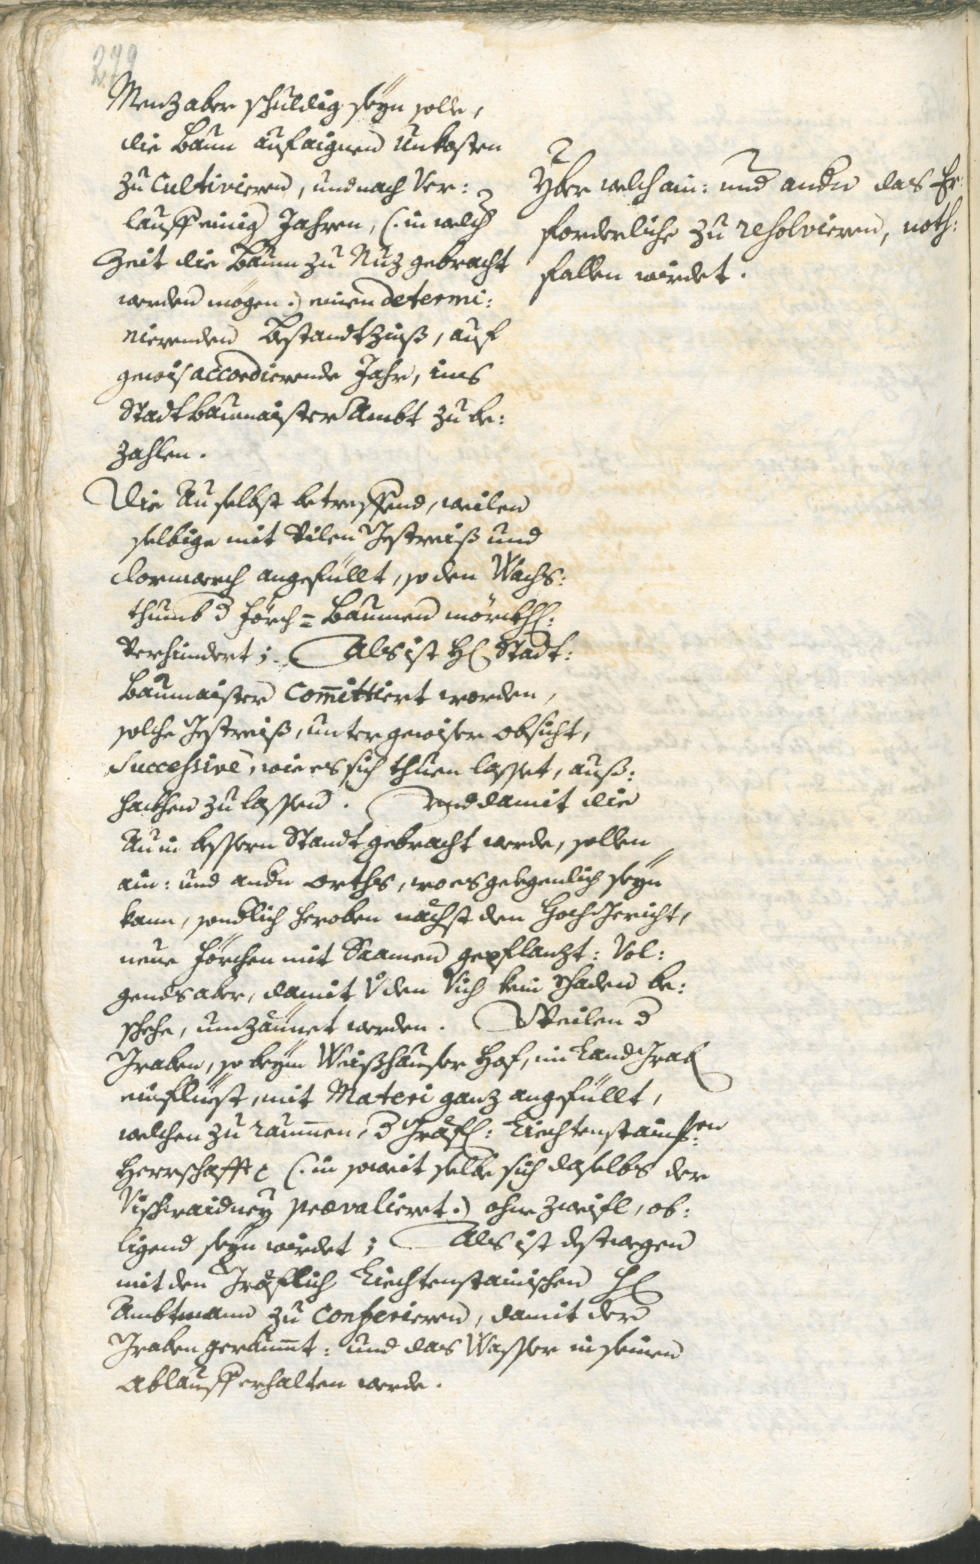 279
Menz aber schuldig seyn solle,
die Baum auf aignen Unkosten
zu Cultivieren, und nach Ver:
lauff einig Jahren, (: in welch
Zeit die Baum zu Nuz gebracht
werden mögen :) einen determi:
nierenden Bestandtzinß, auf
gewiß accordierende Jahr, ins
Stadtbaumaister Ambt zu be:
zahlen.
Die Au selbst betreffend, weilen
selbige mit vilen Gstreiß und
angefüllt, so den Wachs:
thumb d förch= Baumen
verhindert; Als ist H Stadt:
Baumaister Committiert worden,
solche Gstreiß, unter gewiser obsicht,
Successive, wie es sich thuen lasset, auß:
hackhen zu lassen. Und damit die
Au in bessern Standt gebracht werde, sollen
ain: und andn orths, wo es gelegenlich seyn
kann, sondlich heroben nächst den Hochgericht,
neue förchen mit Saamen gepflanzt: Vol:
gends aber, damit v den Vich kein schaden be:
schehe, umzäunet werden. Weilen d
Graben, so beym Weißhauser Hof, in Landgrab
einfliust, mit Materi ganz angefüllt,
welchen zu raumen, d Gräfl: Liechtenstainsen
Herrschafft (: in soweit selbe sich daselbs der
Vischwaidney praevalieret :) ohne Zweifl, ob:
ligend seyn wirdet; Als ist destwegen
mit den Gräfflich Liechtenstainischen H
Ambtmann zu Conferieren, damit der
Graben geraumt: und das Wasser in seinen
Ablauff erhalten werde.
Yber welch ain: und andn das Er
forderliche zu resolvieren, noth:
fallen wirdet.